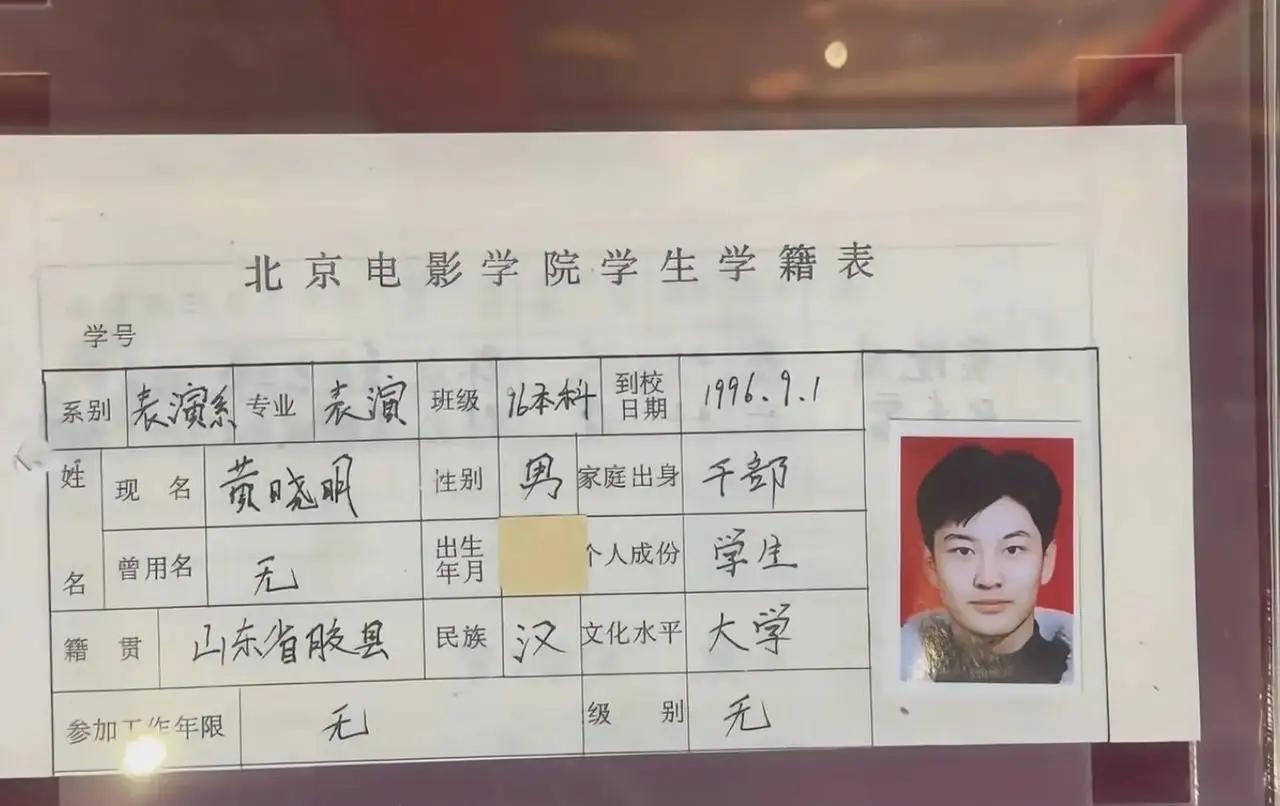 北京电影学院学生学籍表
学号
系别 表演系 专业 表演 班级 96本科 到校日期 1996.9.1
姓名 现名 黄晓明 性别 男 家庭出身 干部
曾用名 无 出生年月 个人成份 学生
籍贯 山东省胶县 民族 汉 文化水平 大学
参加工作年限 无 级别 无